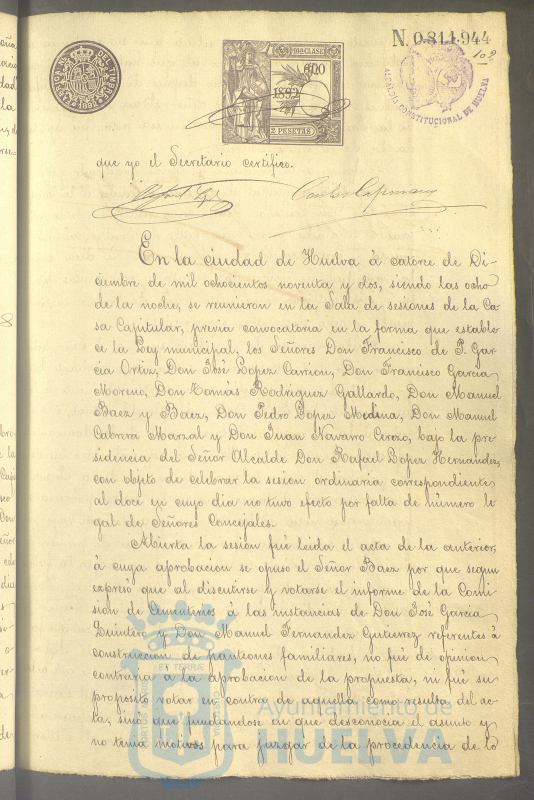 N. 0.811.944
102
10ª CLASE
1892
2 PESETAS
ALCALDIA CONSTITUCIONAL DE HUELVA
que yo el Secretario certifico.
En la ciudad de Huelva á catorce de Di-
ciembre de mil ochocientos noventa y dos, siendo las ocho
de la noche, se reunieron en la Sala de sesiones de la Ca
sa Capitular, previa convocatoria en la forma que estable
ce la Ley municipal, los Señores Don Francisco de P. Gar
cia Ortiz, Don José Lopez Carrion, Don Francisco Garcia
Moreno, Don Tomás Rodriguez Gallardo, Don Manuel
Baez y Baez, Don Pedro Lopez Medina, Don Manuel
Cabrera Marzal y Don Juan Navarro Cerezo, bajo la pre
sidencia del Señor Alcalde Don Rafael Lopez Hernandez,
con objeto de celebrar la sesion ordinaria correspondiente
al doce en cuyo dia no tuvo efecto por falta de número le
gal de Señores Concejales.
Abierta la sesion fué leida el acta de la anterior,
á cuya aprobacion se opuso el Señor Baez por que segun
expresó que al discutirse y votarse el informe de la Comi
sion de Cementerios á las instancias de Don José Garcia
Quintero y Don Manuel Fernandez Gutierrez referentes á
construccion de panteones familiares, no fué de opinion
contraria á la aprobacion de la propuesta, ni fué su
proposito votar en contra de aquella como resulta del ac-
ta, sino que fundandose en que desconocia el asunto y
no tenia motivos para juzgar de la procedencia de lo
Ayuntamiento de
HUELVA